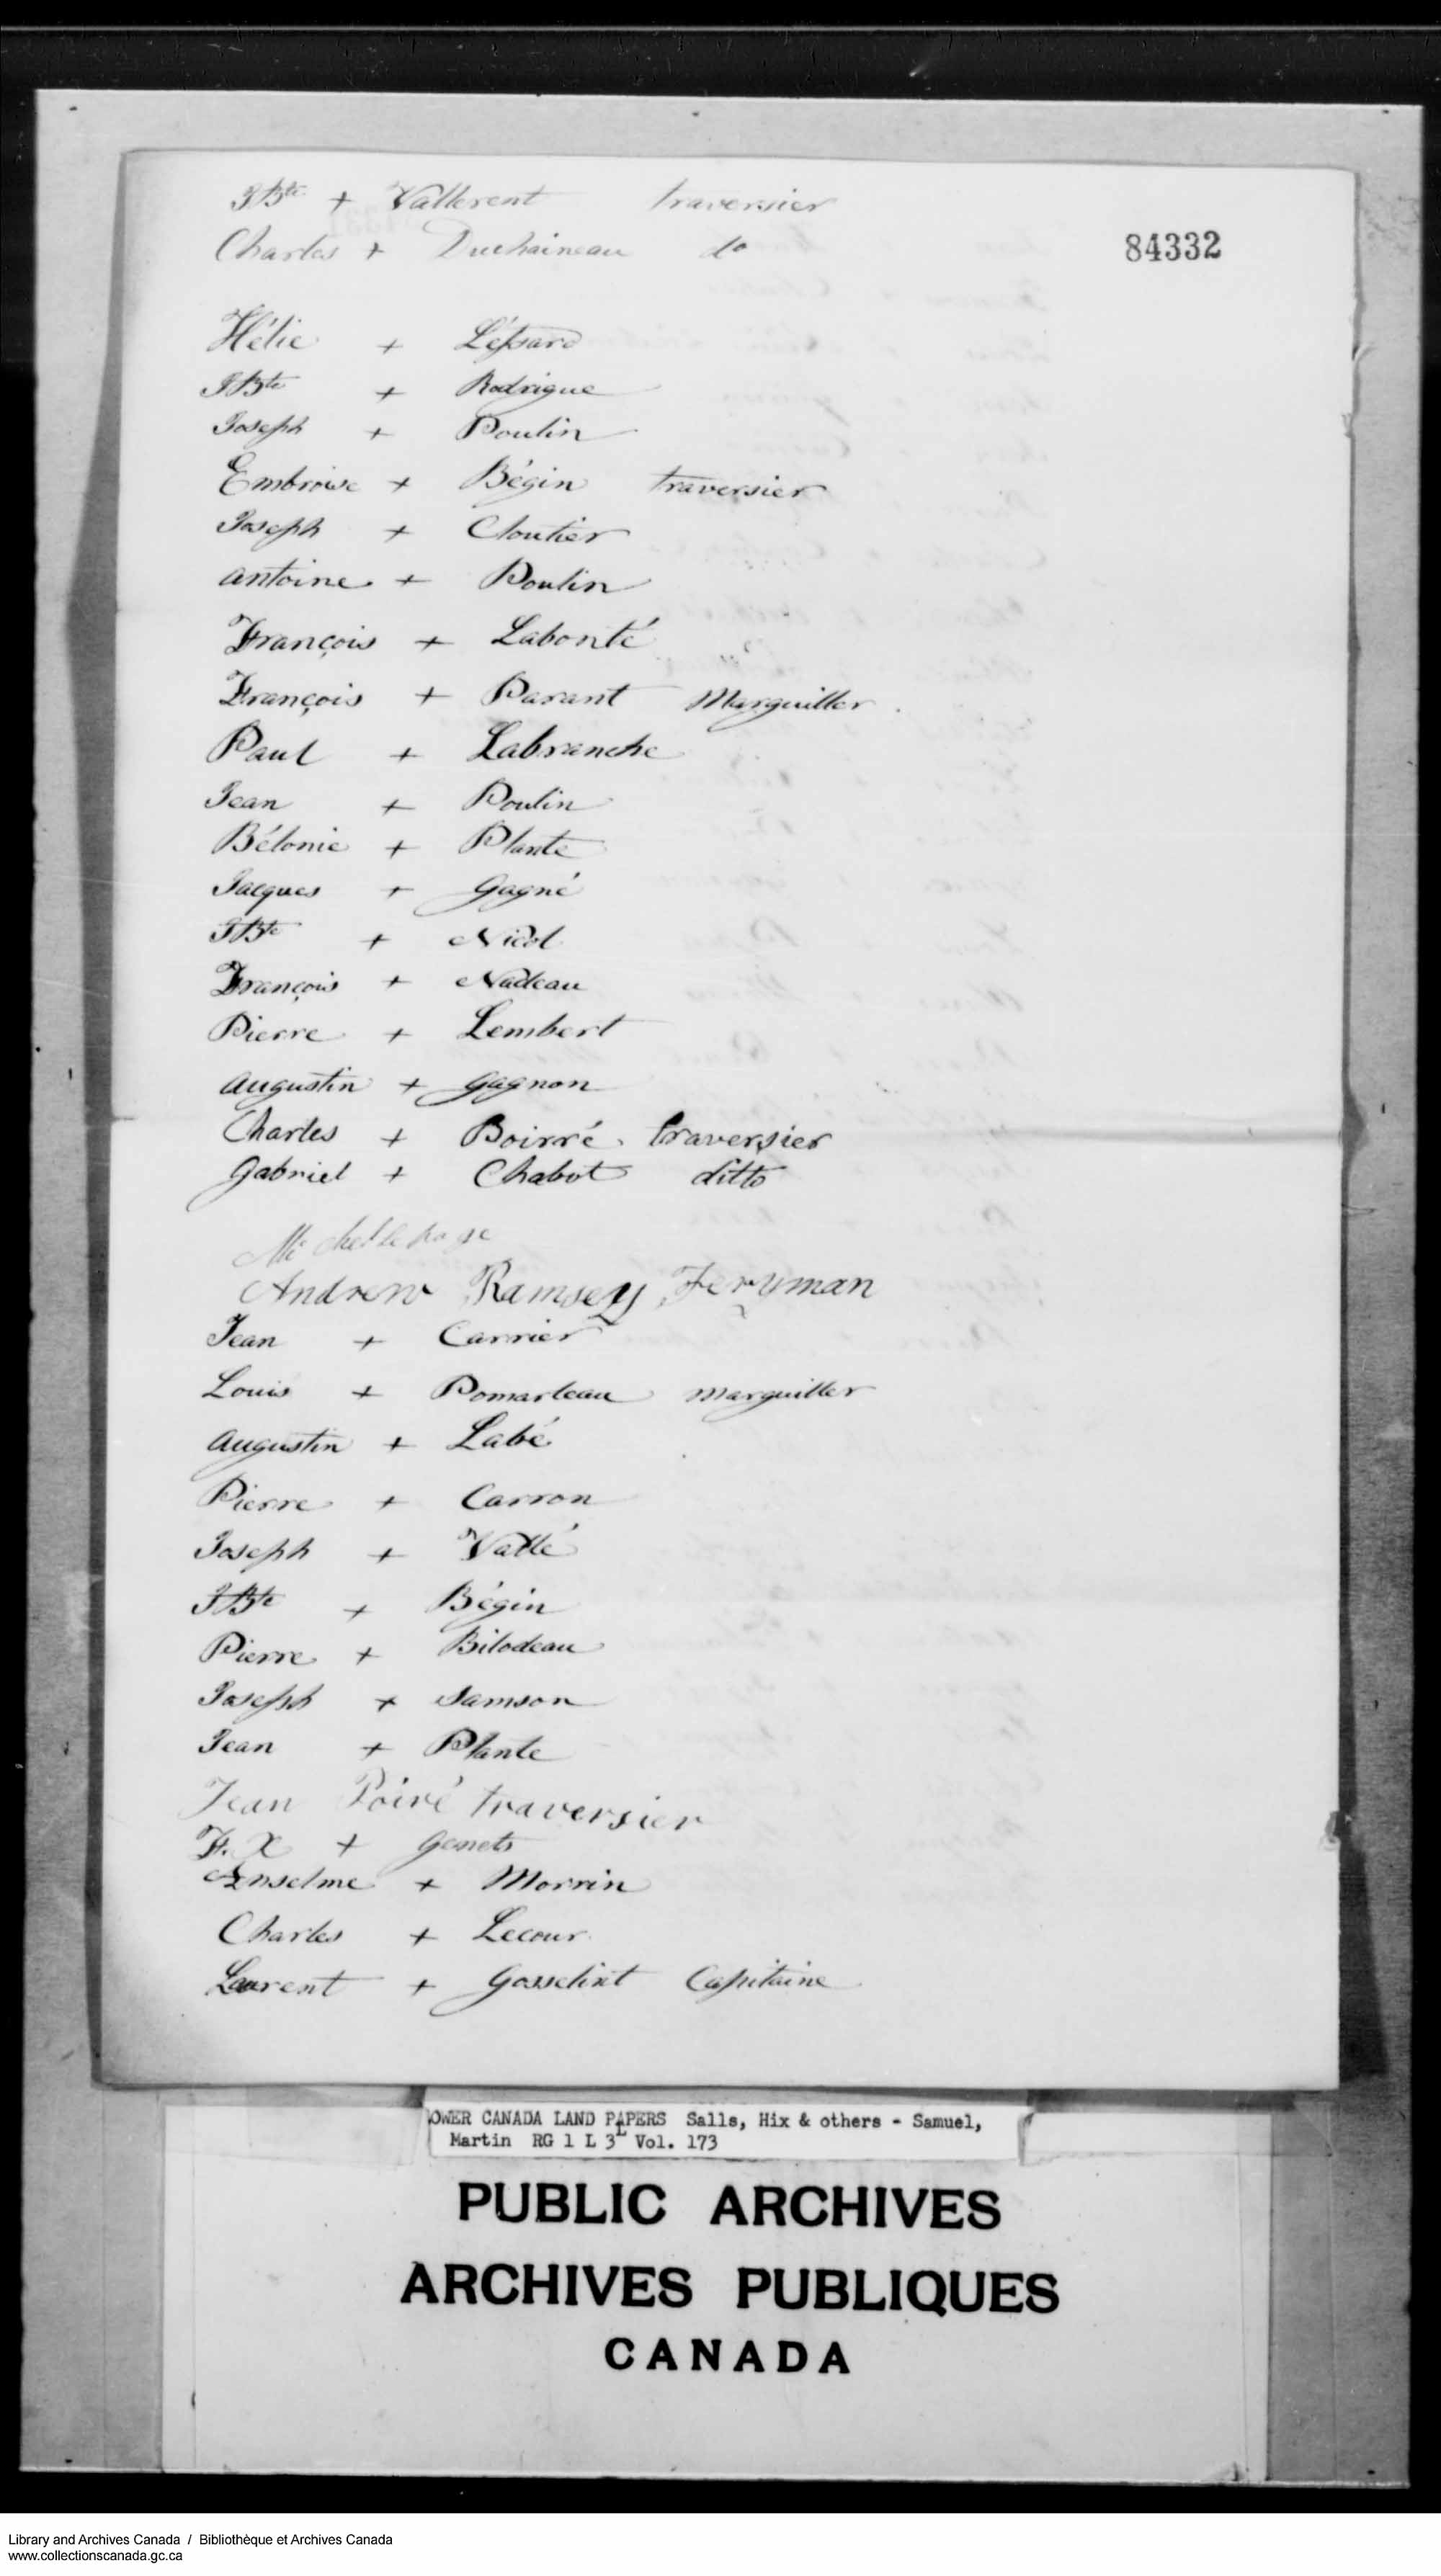 JBte + Vallerent traversier
Charles + Duchaineau do
84332
Hélie + Léssard
JBte + Rodrigue
Joseph + Poulin
Embroise + Bégin traversier
Joseph + Cloutier
Antoine + Poulin
François + Labonté
François + Parant Marguiller
Paul + Labranche
Jean + Poulin
Bélonie + Plante
Jacques + Gagné
JBte + Nicol
François + Nadeau
Pierre + Lembert
Augustin + Gagnon
Charles + Boirré traversier
Gabriel + Chabot ditto
Michel le page
Andrew Ramsey Feryman
Jean + Carrier
Louis + Pomarleau marguiller
Augustin + Labé
Pierre + Carron
Joseph + Vallé
JBte + Bégin
Pierre + Bilodeau
Joseph + Samson
Jean + Plante
Jean Poiré traversier
F. X + Genets
Anselme + Morrin
Charles + Lecour
Laurent + Gosselint Capitaine
OWER CANADA LAND PAPERS Salls, Hix & others - Samuel,
Martin RG 1 L 3L Vol. 173
PUBLIC ARCHIVES
ARCHIVES PUBLIQUES
CANADA
Library and Archives Canada / Bibliothèque et Archives Canada
www.collectionscanada.gc.ca